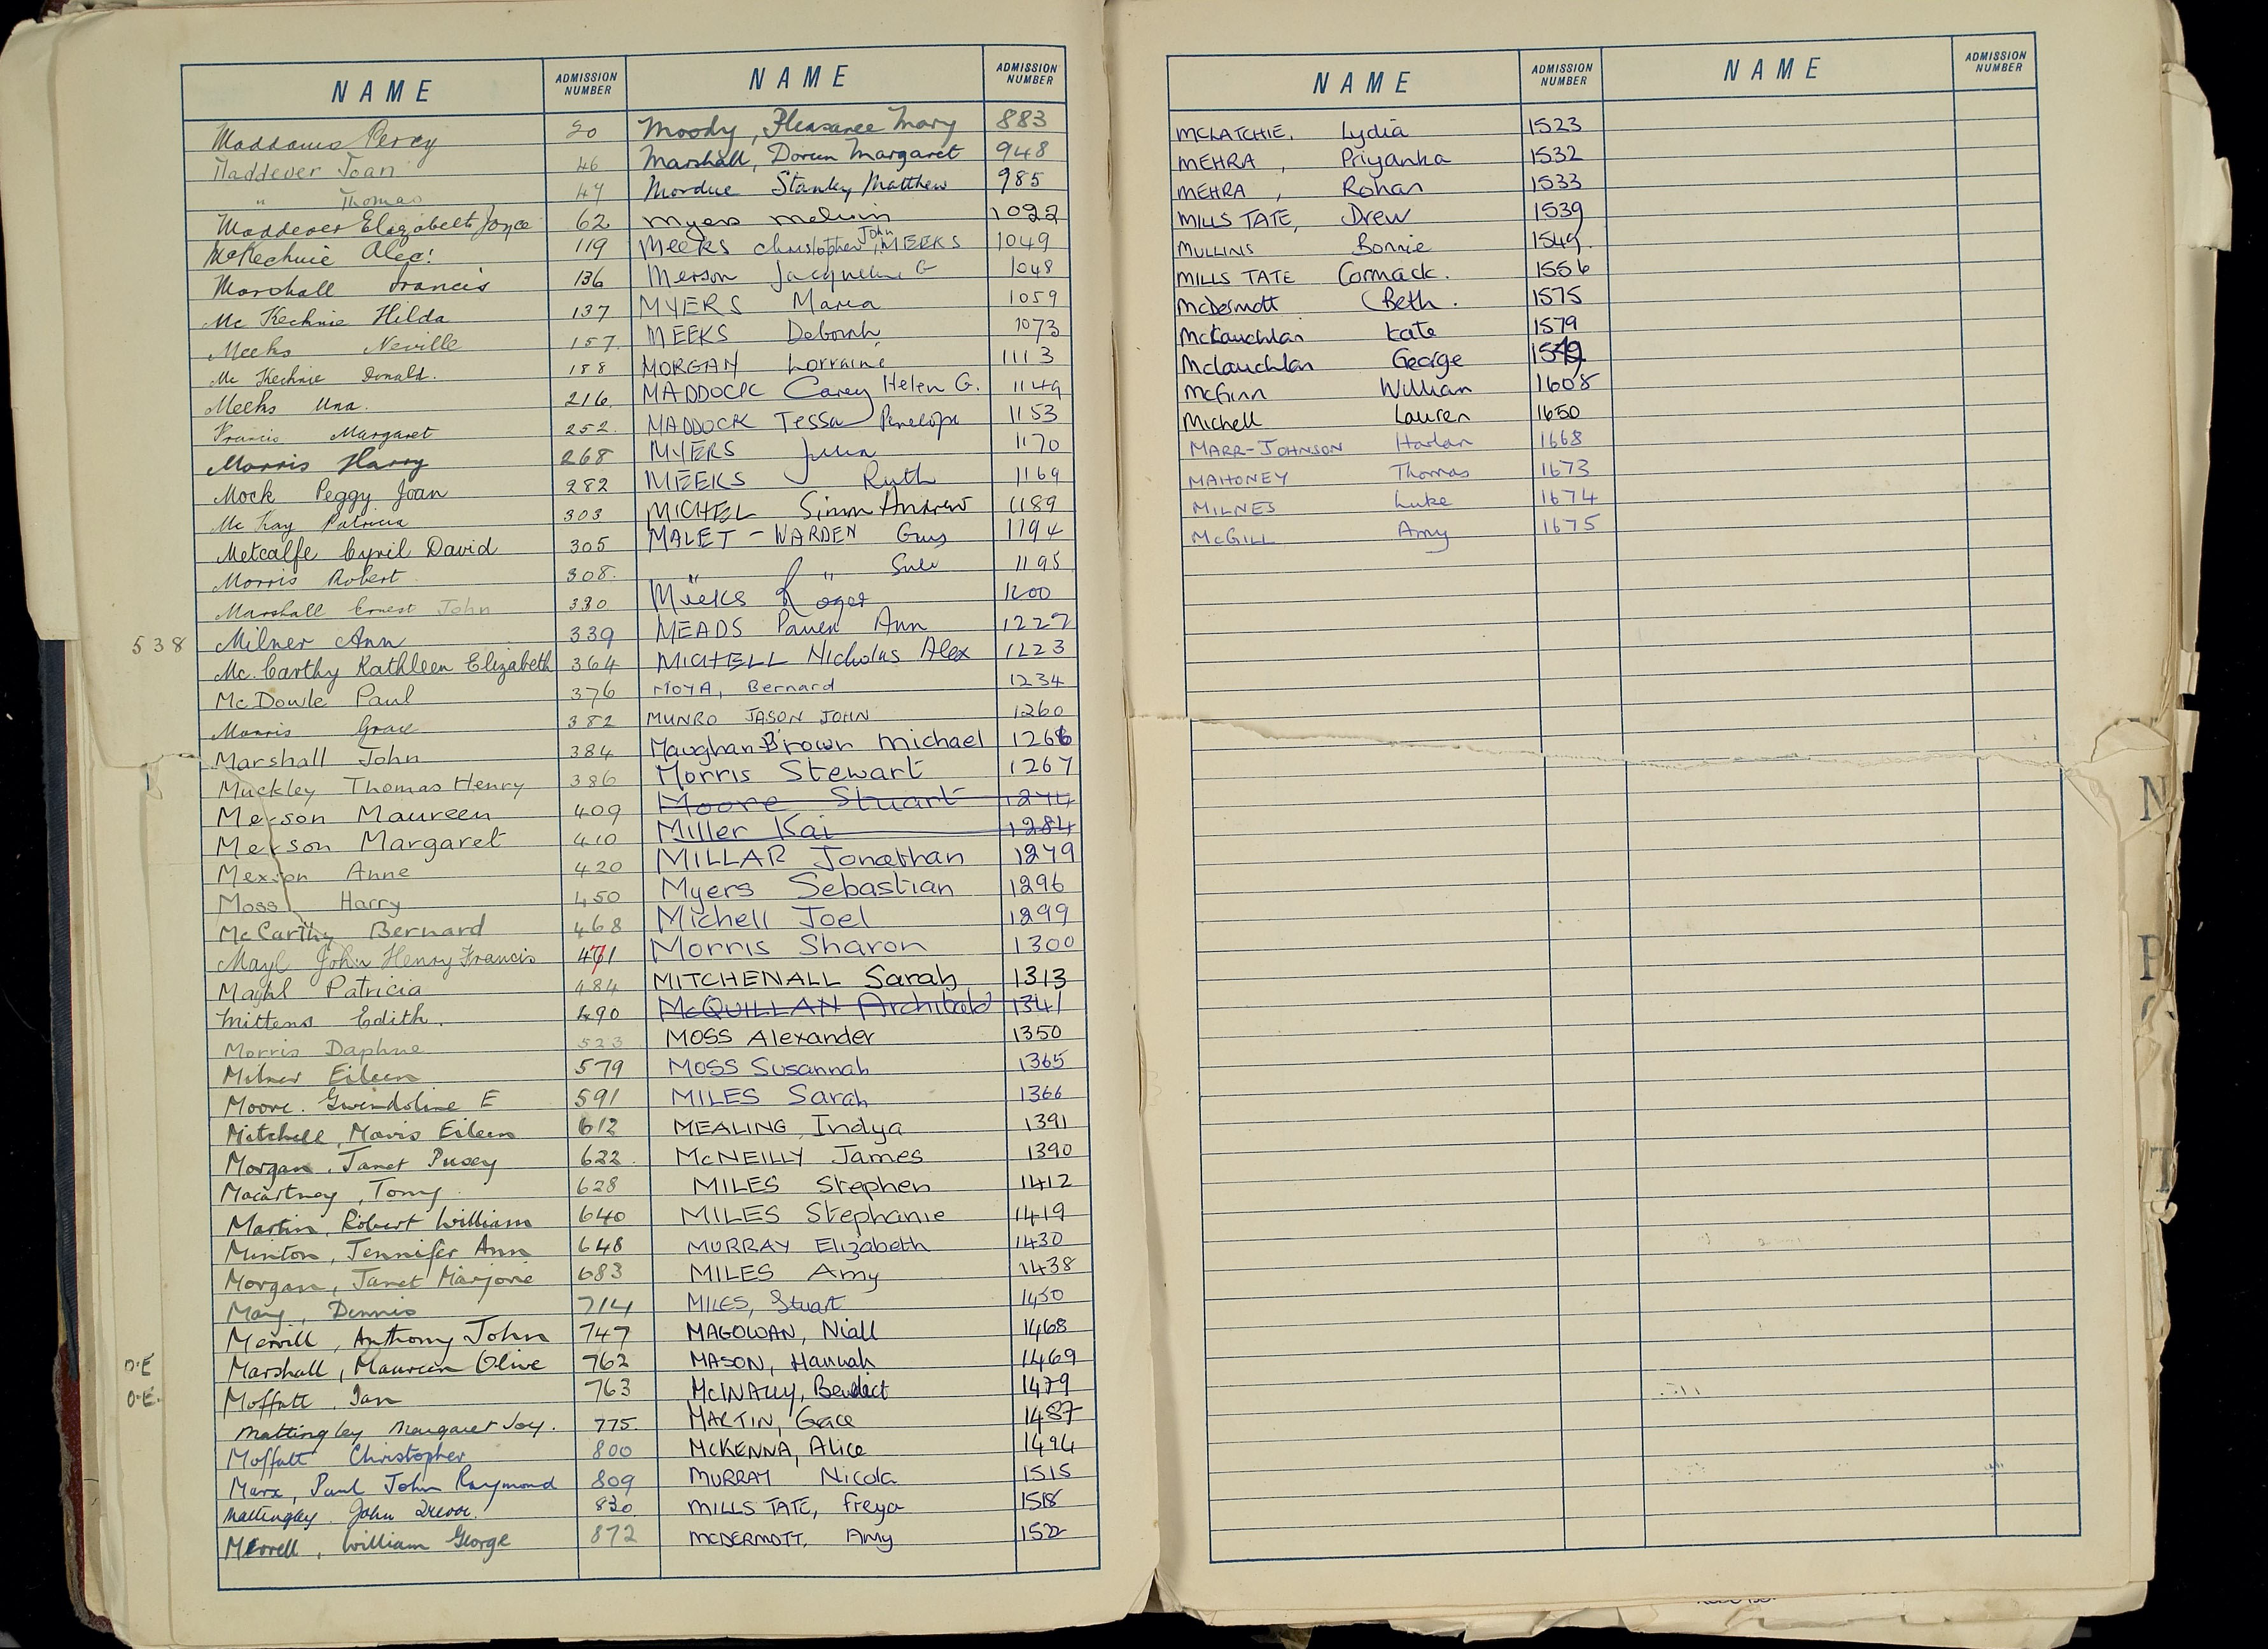 NAME ADMISSION NUMBER
Maddams Percy 20
Maddever Joan 46
" Thomas 47
Maddever Elizabeth Joyce 62
McKechnie Alec. 119
Marshall Francis 136
Mc Kechnie Hilda 137
Meeks Neville 157
Mc Kechnie Donald. 188
Meeks Una. 216
Francis Margaret 252
Morris Harry 268
Mock Peggy Joan 282
Mc Kay Patricia 303
Metcalfe Cyril David 305
Morris Robert 308.
Marshall Ernest John 330
538 Milner Ann 339
Mc. Carthy Kathleen Elizabeth 364
Mc Dowle Paul 376
Morris Grace 382
Marshall John 384
Muckley Thomas Henry 386
Merson Maureen 409
Merson Margaret 410
Mexson Anne 420
Moss Harry 450
McCarthy Bernard 468
John Henry Francis 471
Patricia 484
Mittens Edith. 490
Morris Daphne 523
Milner Eileen 579
Moore. Gwendoline E 591
Mitchell, Mavis Eileen 612
Morgan, Janet Pusey 622
Macartney, Tony 628
Martin, Robert William 640
Minton, Jennifer Ann 648
Morgan, Janet Marjorie 683
May, Dennis 714
Merrill, Anthony John 747
O.E Marshall, Maureen Olive 762
O.E. Moffatt, Ian 763
Mattingley Margaret Joy. 775.
Moffatt Christopher 800
Marx, Paul John Raymond 809
Mattingley. John Trevor. 830
Merrell, William George 872
NAME ADMISSION NUMBER
Moody, Pleasance Mary 883
Marshall, Doreen Margaret 948
Mordue Stanley Matthew 985
Myers Melvin 1022
Meeks Christopher John MEEKS 1049
Merson Jacqueline G 1048
MYERS Maria 1059
MEEKS Deborah 1073
MORGAN Lorraine 1113
MADDOCK Carey Helen G. 1149
MADDOCK Tessa Penelope 1153
MYERS Julia 1170
MEEKS Ruth 1169
MICHEL Simon Andrew 1189
MALET-WARDEN Guy 1194
" " 1195
Meeks Roger 1200
MEADS Ann 1222
MICHELL Nicholas Alex 1223
MOYA, Bernard 1234
MUNRO JASON JOHN 1260
Maughan-Brown Michael 1266
Morris Stewart 1267
Moore Stuart 1274
Miller Kai 1284
MILLAR Jonathan 1279
Myers Sebastian 1296
Michell Joel 1299
Morris Sharon 1300
MITCHENALL Sarah 1313
McQUILLAN Archibald 1341
MOSS Alexander 1350
MOSS Susannah 1365
MILES Sarah 1366
MEALING, Indya 1391
McNEILLY James 1390
MILES Stephen 1412
MILES Stephanie 1419
MURRAY Elizabeth 1430
MILES Amy 1438
MILES, Stuart 1450
MAGOWAN, Niall 1468
MASON, Hannah 1469
McINALLY, Benedict 1479
MARTIN, Grace 1487
McKENNA, Alice 1494
MURRAY Nicola 1515
MILLS TATE, Freya 1518
McDERMOTT, Amy 1522
NAME ADMISSION NUMBER NAME ADMISSION NUMBER
MCLATCHIE, Lydia 1523
MEHRA, Priyanka 1532
MEHRA, Rohan 1533
MILLS TATE, Drew 1539
MULLINS Bonnie 1549.
MILLS TATE Cormack. 1556
McDermott Beth. 1575
McLauchlan Kate 1579
McLauchlan George
McGinn William 1608
Michell Lauren 1650
MARR-JOHNSON Harlan 1668
MAHONEY Thomas 1673
MILNES Luke 1674
McGILL Amy 1675